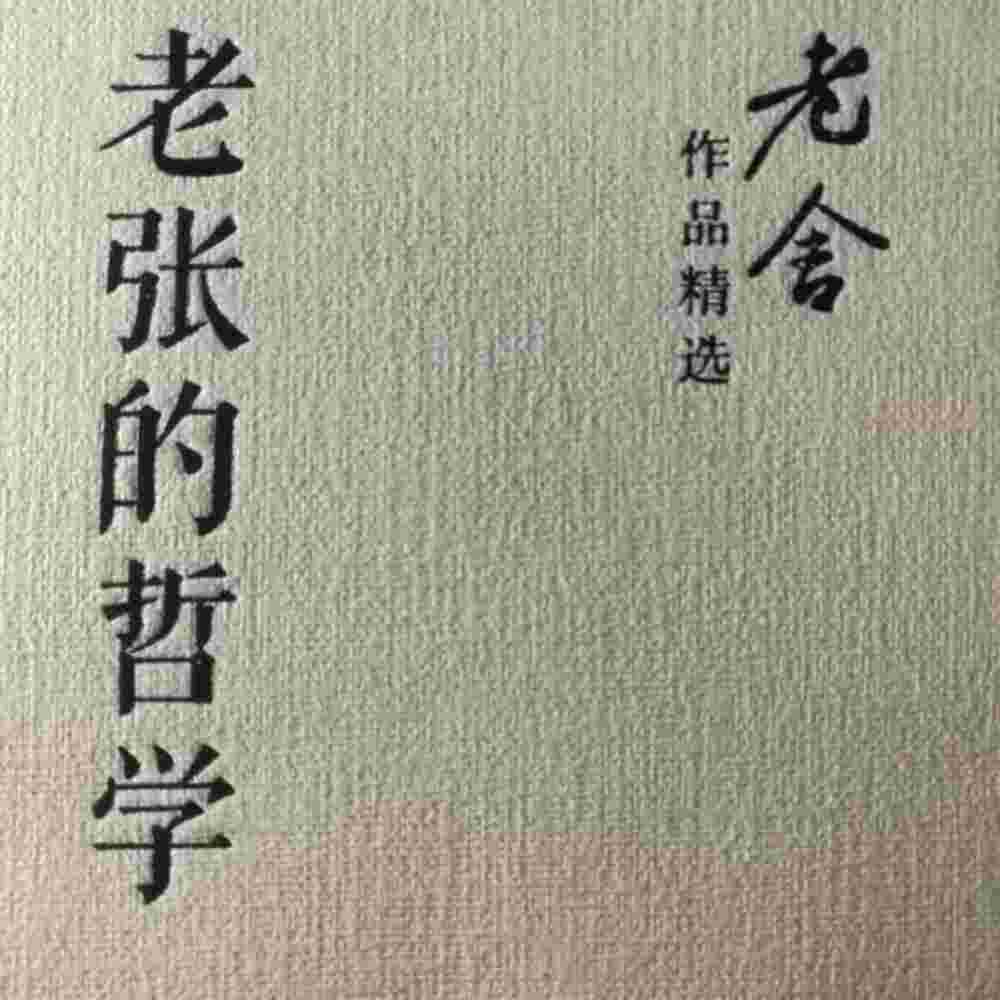 老舍
作品精选
老张的哲学